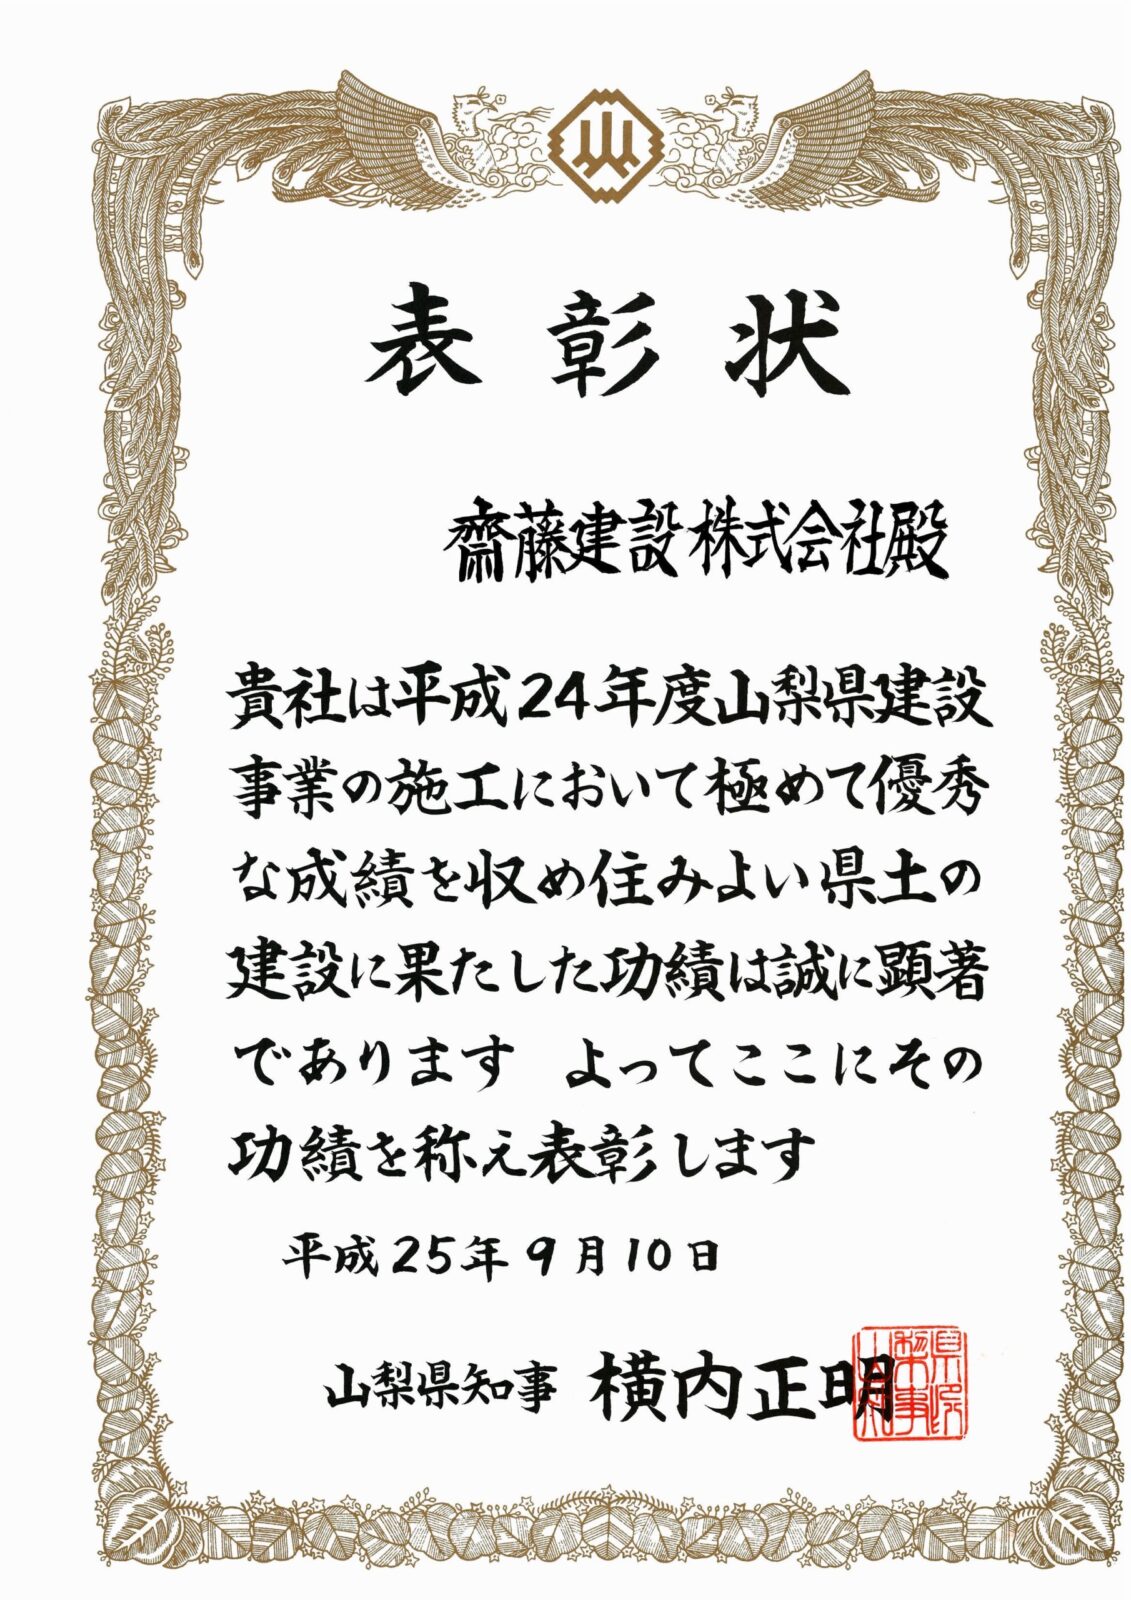 表彰状
齋藤建設株式会社殿
貴社は平成24年度山梨県建設
事業の施工において極めて優秀
な成績を収め住みよい県土の
建設に果たした功績は誠に顕著
であります よってここにその
功績を称え表彰します
平成25年9月10日
山梨県知事 横内正明
山梨県知事印